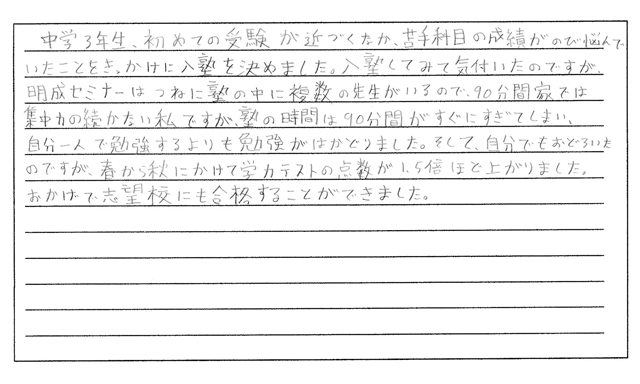 中学3年生、初めての受験が近づくなか、苦手科目の成績がのび悩んで
いたことをきっかけに入塾を決めました。入塾してみて気付いたのですが、
明成セミナーはつねに塾の中に複数の先生がいるので、90分間家では
集中力の続かない私ですが、塾の時間は90分間がすぐにすぎてしまい、
自分一人で勉強するよりも勉強がはかどりました。そして、自分でもおどろいた
のですが、春から秋にかけて学力テストの点数が1.5倍ほど上がりました。
おかげで志望校にも合格することができました。